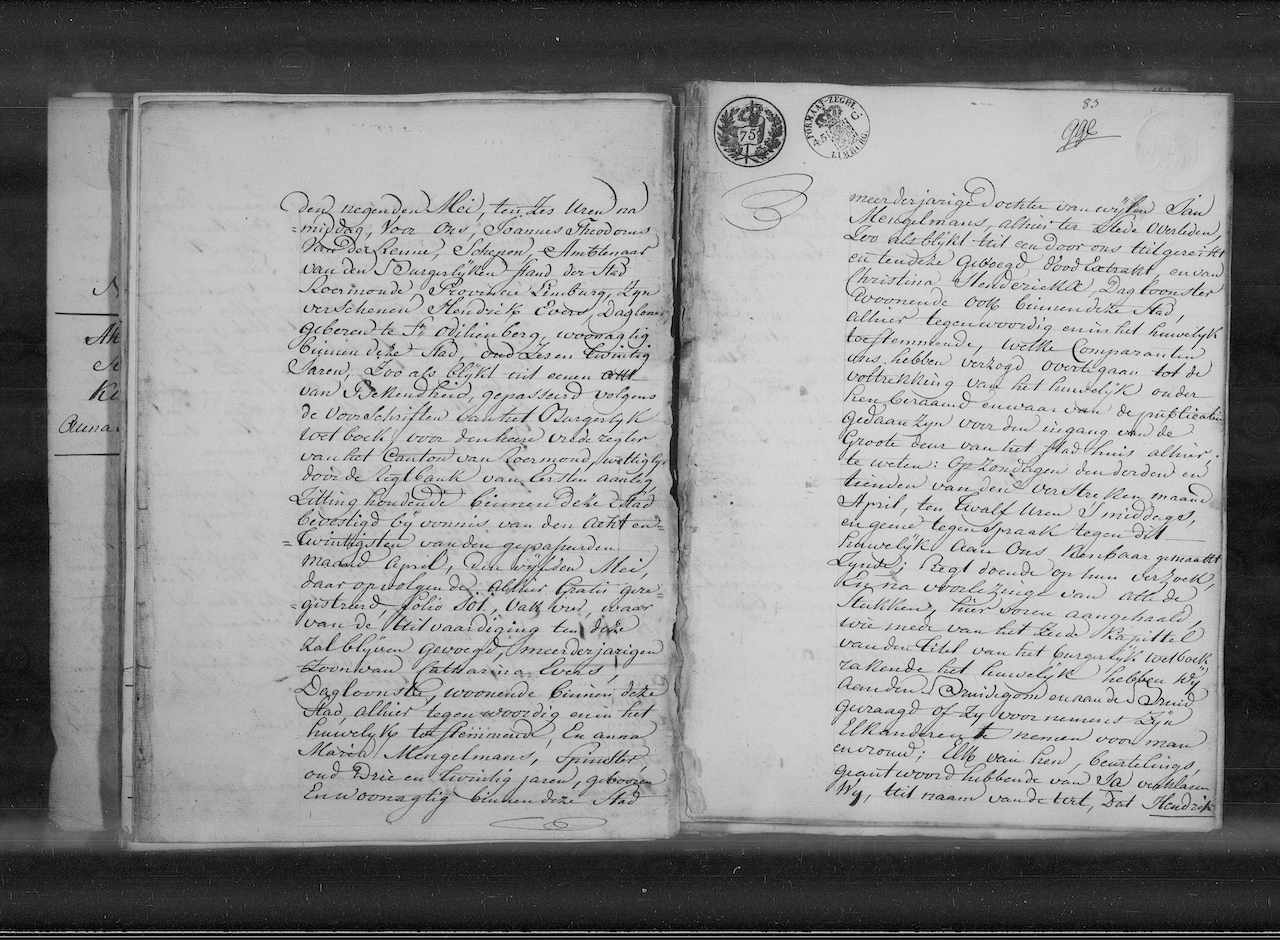 den negenden Mei, ten zes Uren na
=middag, Voor Ons, Joannes Theodorus
Van Der Renne, Schepen, Ambtenaar
van den Burgerlijken Stand der Stad
Roermonde Provincie Limburg, Zyn
verschenen Hendrik Evers, Daglooner
geboren te St Odilienberg, woonagtig
binnen deze Stad, oud Zes en twintig
Jaren, Zoo als blykt uit eenen akte
van Bekendheid, gepasseerd volgens
de Voorschriften van het Burgerlyk
wetboek, voor den heere vrederegter
van het Canton van Roermond, wettiglyk
door de regtbank van Eersten aanleg
Zitting houdende binnen deze Stad
bevestigd by vonnis van den acht en=
=twintigsten van den gepasseerden
maand April, den vyfden Mei,
daar op volgende alhier gratis gere=
=gistreerd, folio 101, vak vier, waar
van de uitvaardiging ten deze
zal blyven gevoegd, meerderjarigen
Zoon van Catharina Evers,
Dagloonster, woonende binnen deze
Stad, alhier tegenwoordig en in het
huwelyk toestemmende, En anna
Maria Mengelmans, Spinster,
oud Drie en twintig jaren, gebooren
En woonagtig binnen deze Stad
75
1
FORMAAT-ZEGEL
LIMBURG
83
meerderjarige dochter van wylen Jan
Mengelmans, alhier ter stede overleden,
Zoo als blykt uit een door ons uitgereikt
en ten deze gevoegd, dood Extrakt, en van
Christina Henderickx, Dagloonster
woonende ook binnen deze Stad,
alhier tegenwoordig en in het huwelyk
toestemmende, welke Comparanten
ons hebben verzogd overtegaan tot de
voltrekking van het huwelyk onder
hen beraamd en waar van de publicatien
gedaan zyn voor den ingang van de
Groote deur van het Stadhuis alhier,
te weten: Op Zondagen den derden en
tienden van den verstreken maand
April, ten twalf Uren S'middags,
en geene tegenspraak tegen dit
huwelyk aan Ons kenbaar gemaakt
Zynde; regt doende op hun verzoek,
En na voorlezinge van alle de
Stukken, hier voren aangehaald,
wie mede van het Zesde Kapittel
van den Titel van het burgerlyk wetboek
rakende het huwelyk hebben Wy
aen den Bruidigom en aan de Bruid
gevraagd of Zy voornemens Zyn
Elkanderen te nemen voor man
en vrouw; Elk van hen, beurtelings,
geantwoord hebbende van Ja verklaren
Wy, uit naam van de wet, Dat Hendrik